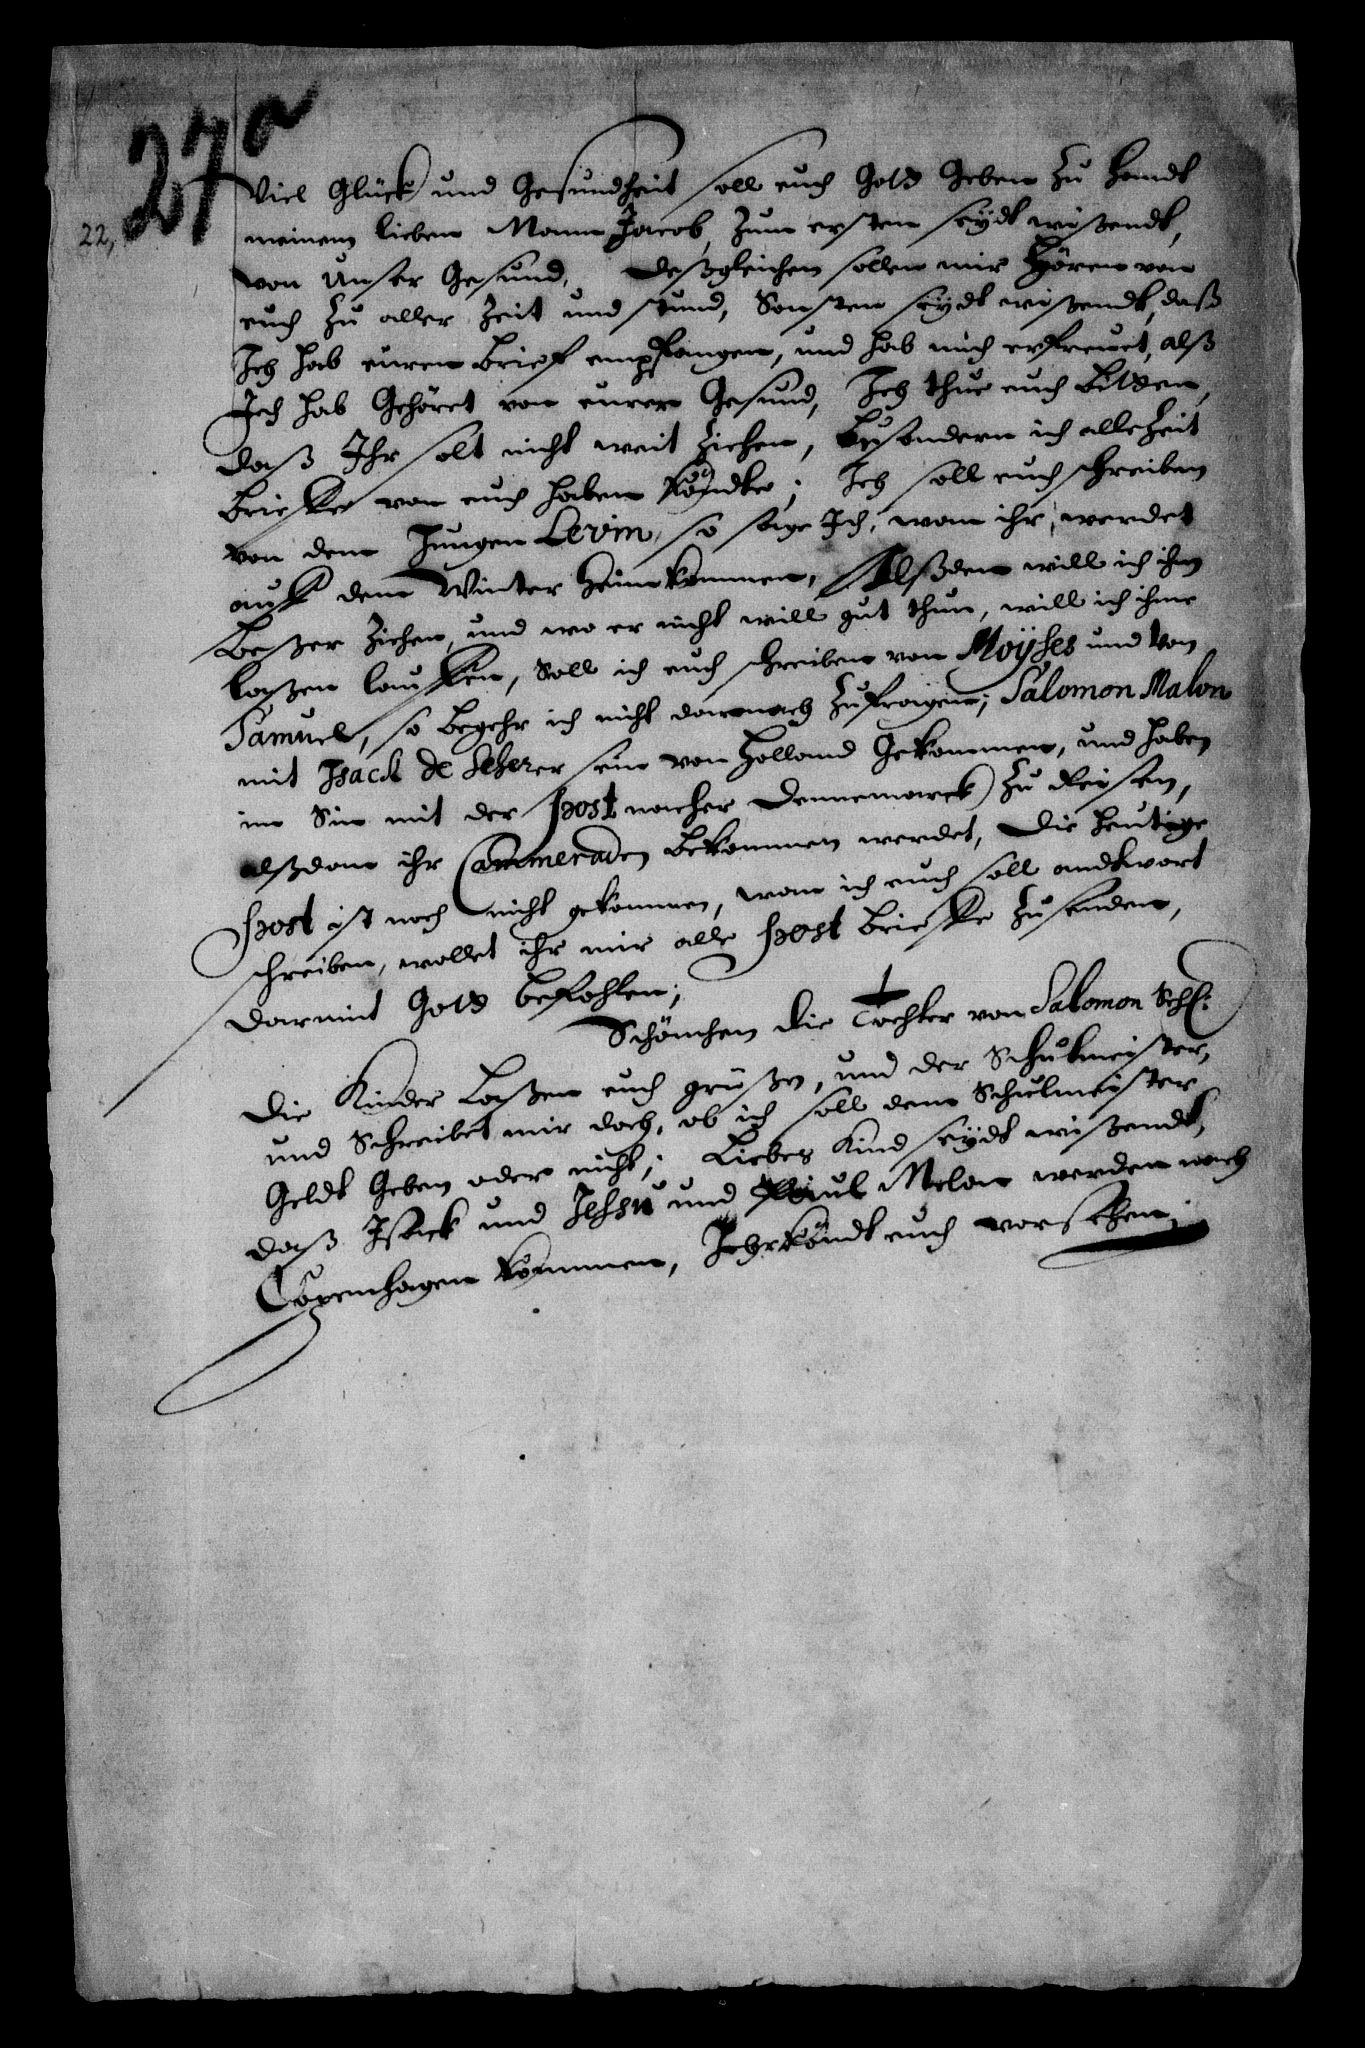 27a
22,
Viel Glück und Gesundheit soll euch Gott Geben zu Handt
meinem lieben Mann Jacob, zum ersten seydt wißendt,
von unser Gesund, deßgleichen sollen mir Hören von
euch zu aller Zeit und stund, Sonsten seydt wißendt, daß
Ich hab euren brieff empfangen, und hab mich erfreuet, alß
Ich hab Gehöret von eurer Gesund, Ich thue euch bitten,
daß Ihr solt nicht weit ziehen, besondern ich alle Zeit
brieffe von euch haben köndte; Ich soll euch schreiben
von dem Jungen Levin, so sage Ich, wan ihr werdet
auff dem Winter heim kommen, Alßden will ich ihn
beßer ziehen, und wo er nicht will gut thun, will ich ihme
laßen lauffen, Soll ich euch schreiben von Moÿses und von
Samuel, so begehr ich nicht darnach zufragen; Salomon Malon
mit Isack de seher sein von Holland Gekommen, und haben
im Sin mit der post nacher Dennemarck zu Reisen,
alßdan ihr Cammeraden bekommen werdet, Die heutige
post ist noch nicht gekommen, wan ich euch soll andtwort
schreiben, wollet ihr mir alle post brieffe zusenden,
darmit Gott befohlen;
Schönchen die Tochter von Salomon Sehl:
Die Kinder Laßen euch grüßen, und der Schulmeister,
und Schreibet mir doch, ob ich soll dem Schulmeister
Geldt Geben oder nicht; Liebes Kind seydt wißendt,
daß Isack und und Melon werden nach
Copenhagen kommen, Ihr köndt euch vorsehen;